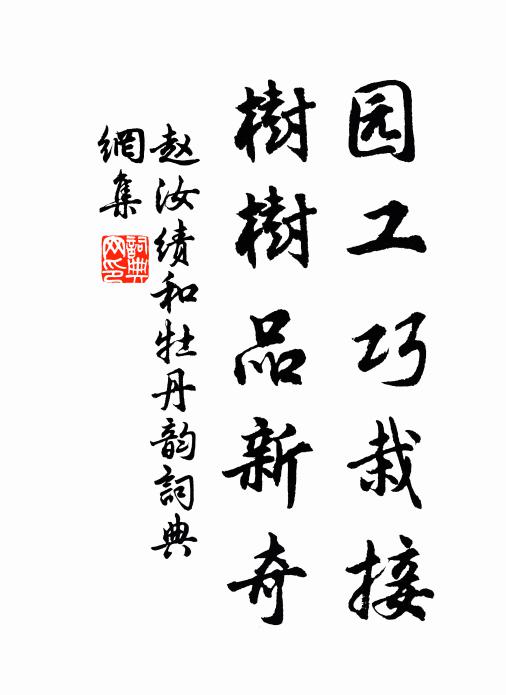 园工巧栽接
樹樹品新奇
赵汝绩和牡丹韵詞典
網集
詞典
网印